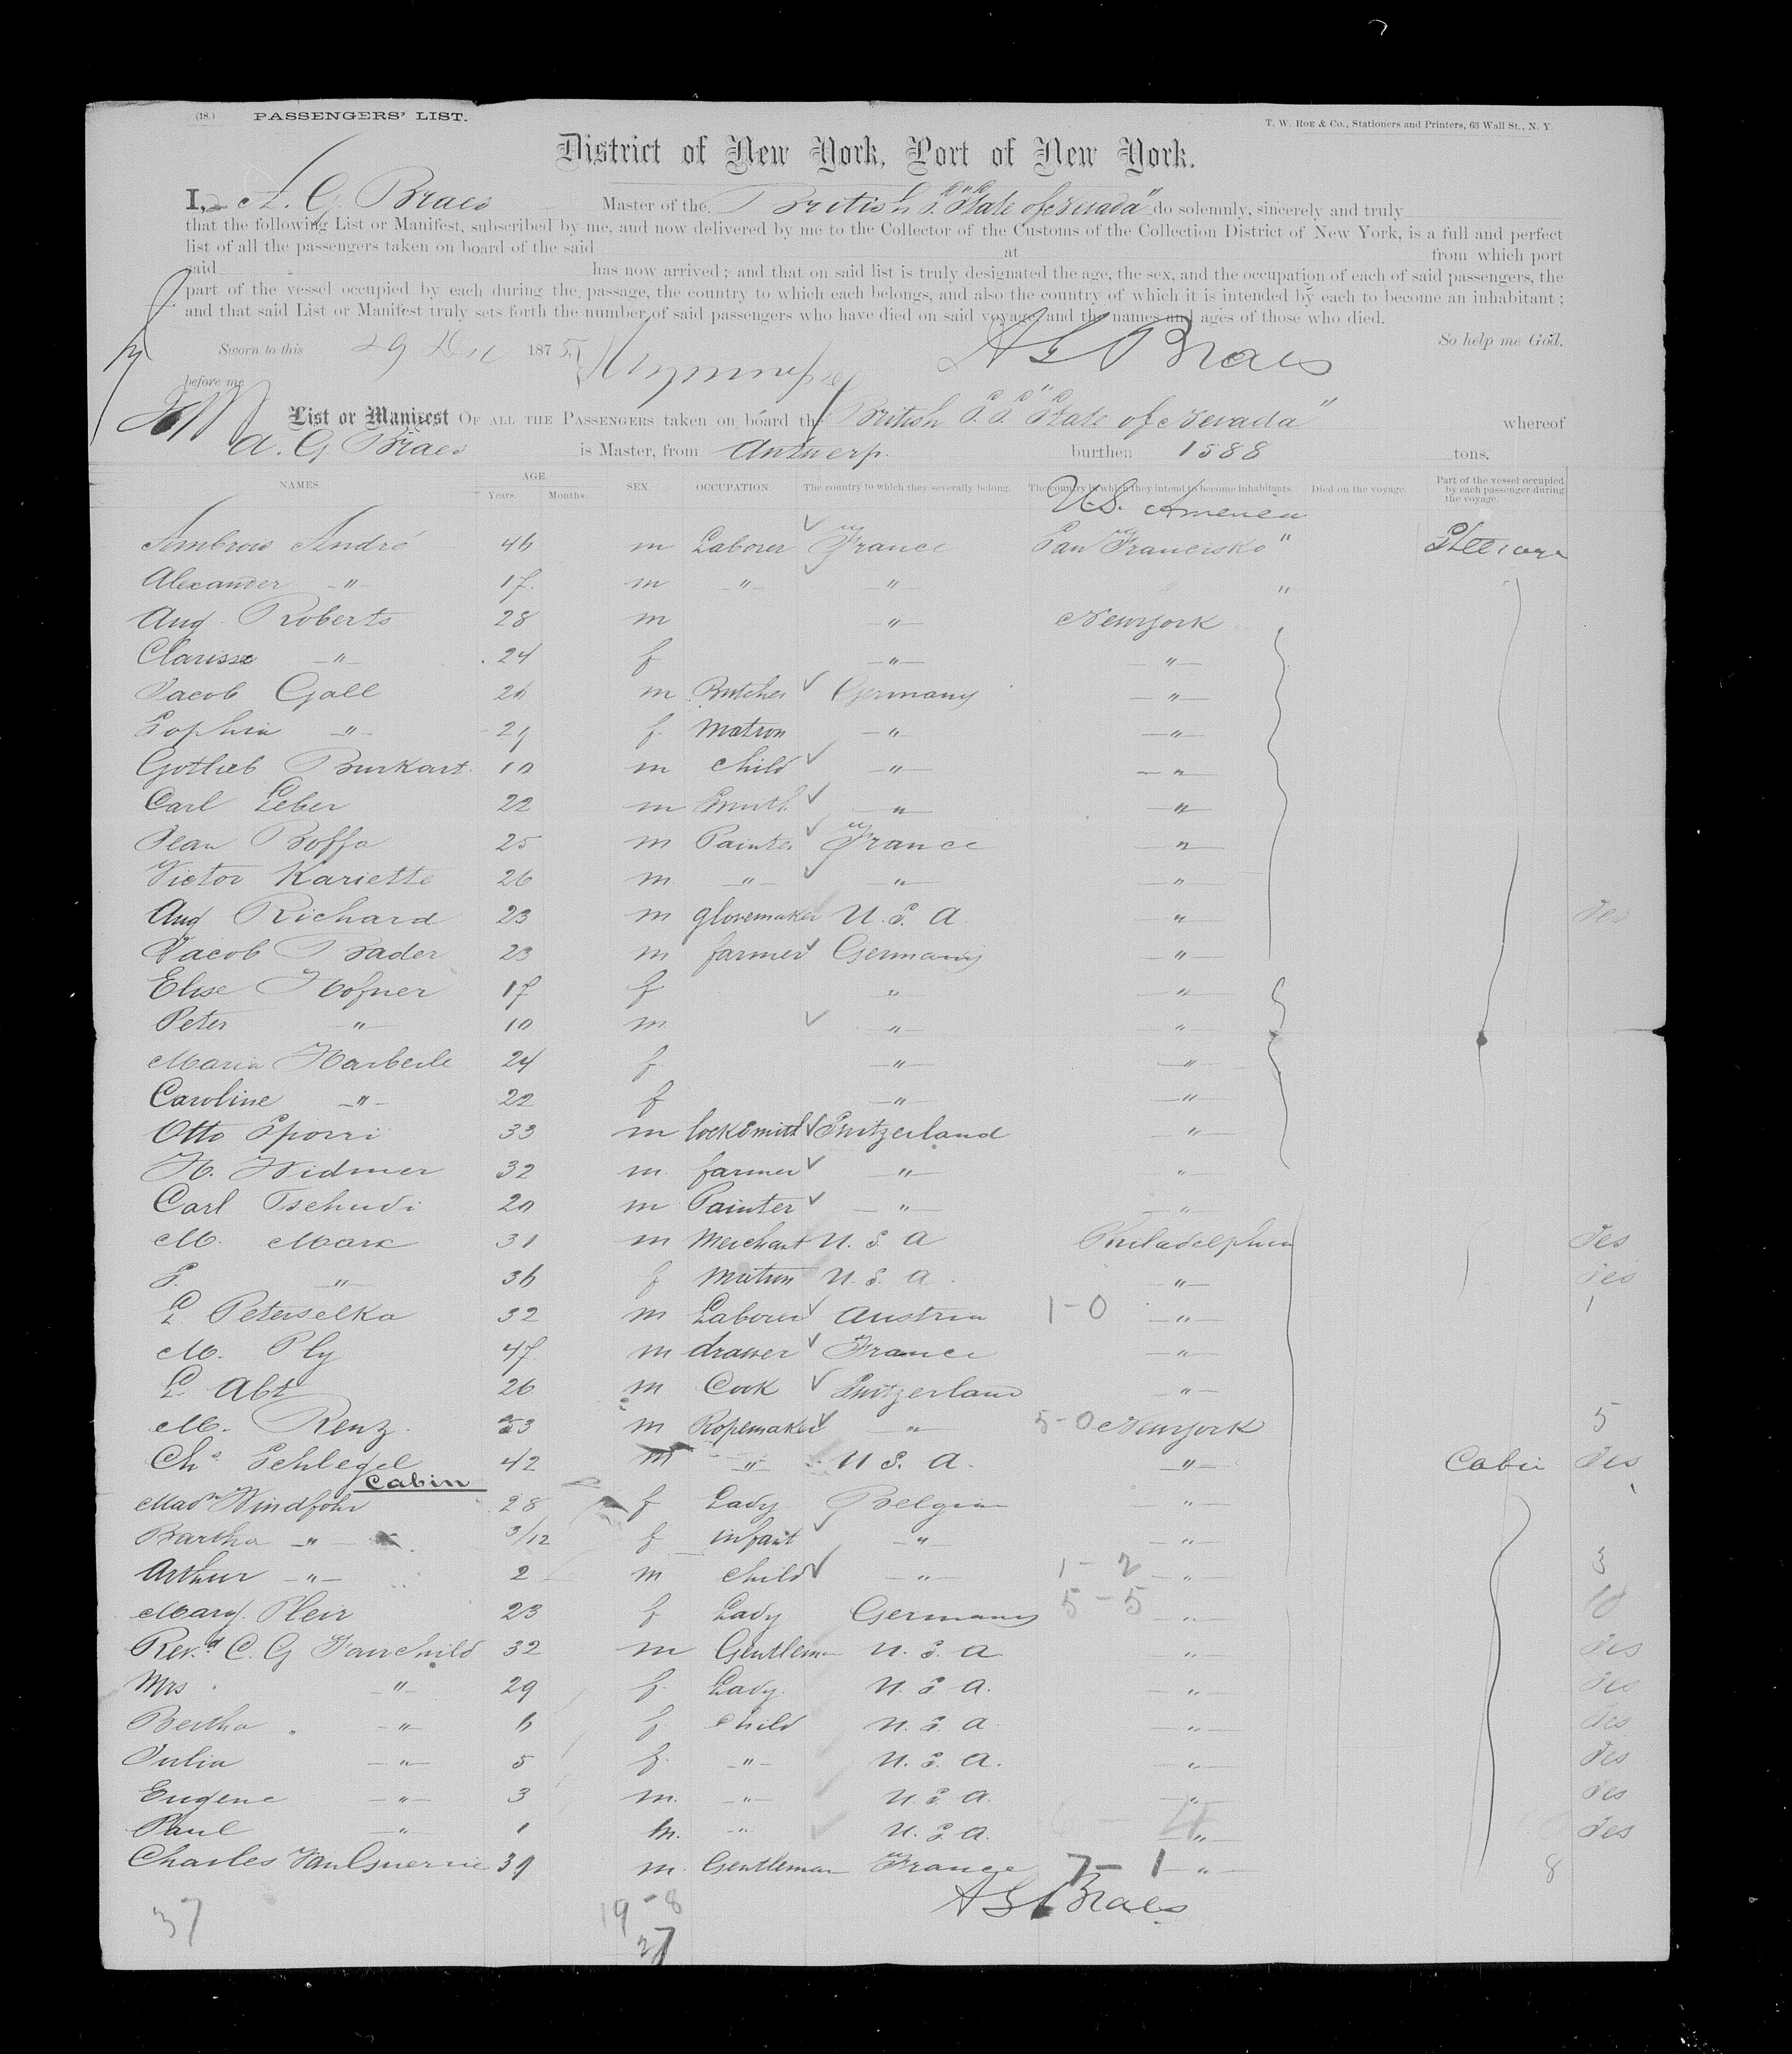 (18.) PASSENGERS' LIST.
T. W. Roe & Co., Stationers and Printers, 63 Wall St., N. Y.
District of New York, Port of New York.
I, A. G. Braes Master of the British S. S. "State of Nevada" do solemnly, sincerely and truly
that the following List or Manifest, subscribed by me, and now delivered by me to the Collector of the Customs of the Collection District of New York, is a full and perfect
list of all the passengers taken on board of the said at from which port
said has now arrived; and that on said list is truly designated the age, the sex, and the occupation of each of said passengers, the
part of the vessel occupied by each during the passage, the country to which each belongs, and also the country of which it is intended by each to become an inhabitant;
and that said List or Manifest truly sets forth the number of said passengers who have died on said voyage, and the names and ages of those who died.
Sworn to this 29 Dec 1875 A G Braes So help me God.
before me
List or Manifest OF ALL THE PASSENGERS taken on board the British S. S. "State of Nevada" whereof
A. G. Braes is Master, from Antwerp. burthen 1588 tons.
NAMES. AGE. Years. Months. SEX. OCCUPATION. The country to which they severally belong. The country in which they intend to become inhabitants. Died on the voyage. Part of the vessel occupied by each passenger during the voyage.
U.S. America
André 46 m Laborer France San Francisko " Steerage
Alexander " 17 m " " "
Aug. Roberts 28 m " Newyork
Clarisse " 24 f " "
Jacob Gall 26 m Butcher Germany "
Sophia " 29 f. Matron " "
Gotlieb Burkart 10 m child " "
Carl Leber 22 m Smith " "
Jean Boffa 25 m Painter France "
Victor Kariette 26 m " " "
Aug Richard 23 m glovemaker U. S. A. " Yes
Jacob Bader 23 m farmer Germany "
Elise Hofner 17 f " "
Peter " 10 m " "
Maria Harberle 24 f " "
Caroline " 22 f " "
Otto Sporri 33 m locksmith Switzerland "
H. Widmer 32 m farmer " "
Carl Tschudi 20 m Painter " "
M. Marx 31 m Merchant U. S. A Philadelphia Yes
S. " 36 f Matron U. S. A. " Yes
L. Peterselka 32 m Laborer Austria 1-0 " 1
M. Ply 47 m drawer France "
L. Abt 26 m Cook Switzerland "
M. Renz 23 m Ropemaker " 5-0 Newyork 5
Chs Schlegel 42 m " U S. A. " Cabin Yes
Cabin
Madm Windfohr 28 f Lady Belgium "
Bartha " 3/12 f infant " "
Arthur " 2 m child " 1-2 " 3
Mary. Pleir 23 f Lady Germany 5-5 " 10
Revd C. G Fairchild 32 m Gentleman U. S. A " Yes
Mrs " 29 f. Lady. U. S. A. " Yes
Bertha " 6 f child U. S. A " Yes
Julia " 5 f. " U. S. A. " Yes
Eugene " 3 m. " U. S. A. " Yes
Paul " 1 m. " U. S. A. 4 " Yes
Charles 39 m Gentleman France 7-1 " 8
A G Braes
37 19-8
27